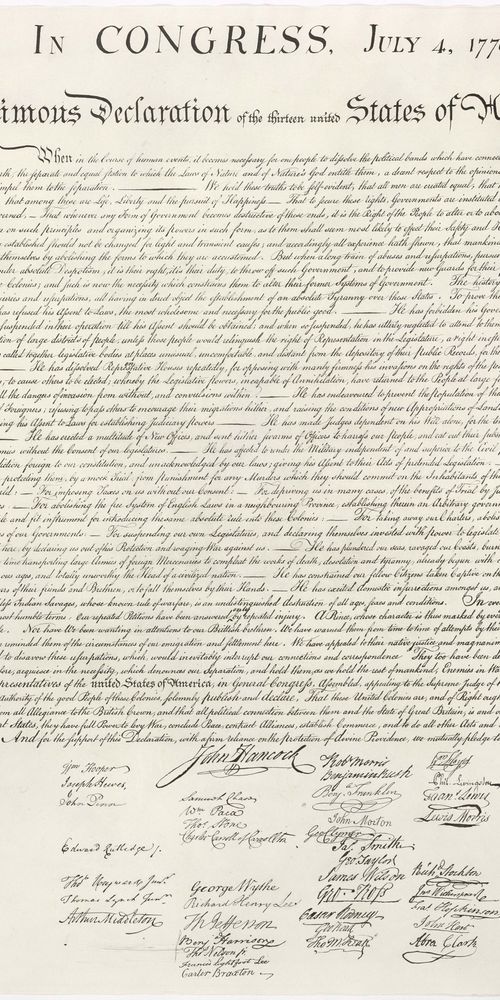 IN CONGRESS, JULY 4, 177
imous Declaration of the thirteen united States of A
When in the Course of human events, it becomes necessary for one people to dissolve the political bands which have connec
rth, the separate and equal station to which the Laws of Nature and of Nature's God entitle them, a decent respect to the opinions
impel them to the separation. — We hold these truths to be self-evident, that all men are created equal, that
that among these are Life, Liberty and the pursuit of Happiness.— That to secure these rights, Governments are instituted
erned, — That whenever any Form of Government becomes destructive of these ends, it is the Right of the People to alter or to abo
n on such principles and organizing its powers in such form, as to them shall seem most likely to effect their Safety and
established should not be changed for light and transient causes; and accordingly all experience hath shewn, that mankin
themselves by abolishing the forms to which they are accustomed. But when a long train of abuses and usurpations, pursu
nder absolute Despotism, it is their right, it is their duty, to throw off such Government, and to provide new Guards for their
Colonies; and such is now the necessity which constrains them to alter their former Systems of Government. The history
uries and usurpations, all having in direct object the establishment of an absolute Tyranny over these States. To prove th
has refused his Assent to Laws, the most wholesome and necessary for the public good. — He has forbidden his Gove
suspended in their operation till his Assent should be obtained; and when so suspended, he has utterly neglected to attend to the
tion of large districts of people, unless those people would relinquish the right of Representation in the Legislature, a right inesti
called together legislative bodies at places unusual, uncomfortable, and distant from the depository of their Public Records, for th
— He has dissolved Representative Houses repeatedly, for opposing with manly firmness his invasions on the rights of the pe
, to cause others to be elected; whereby the Legislative powers, incapable of Annihilation, have returned to the People at large
ll the dangers of invasion from without, and convulsions within. — He has endeavoured to prevent the population of tha
Foreigners; refusing to pass others to encourage their migrations hither, and raising the conditions of new Appropriations of Lan
ing his Assent to Laws for establishing Judiciary powers. — He has made Judges dependent on his Will alone, for the
— He has erected a multitude of New Offices, and sent hither swarms of Officers to harrass our people, and eat out their
mies without the Consent of our legislatures. — He has affected to render the Military independent of and superior to the Civil
diction foreign to our constitution, and unacknowledged by our laws; giving his Assent to their Acts of pretended Legislation:
protecting them, by a mock Trial, from punishment for any Murders which they should commit on the Inhabitants of the
ld: — For imposing Taxes on us without our Consent: — For depriving us in many cases, of the benefits of Trial by
s: — For abolishing the free System of English Laws in a neighbouring Province, establishing therein an Arbitrary governm
le and fit instrument for introducing the same absolute rule into these Colonies: — For taking away our Charters, abol
s of our Governments: — For suspending our own Legislatures, and declaring themselves invested with power to legislate
here, by declaring us out of his Protection and waging War against us. — He has plundered our seas, ravaged our Coasts, burn
time transporting large Armies of foreign Mercenaries to compleat the works of death, desolation and tyranny, already begun with
ous ages, and totally unworthy the Head of a civilized nation. — He has constrained our fellow Citizens taken Captive on th
rs of their friends and Brethren, or to fall themselves by their Hands. — He has excited domestic insurrections amongst us, an
less Indian Savages, whose known rule of warfare, is an undistinguished destruction of all ages, sexes and conditions. In eve
most humble terms: Our repeated Petitions have been answered only by repeated injury. A Prince, whose character is thus marked by ev
e. Nor have We been wanting in attentions to our Brittish brethren. We have warned them from time to time of attempts by thei
reminded them of the circumstances of our emigration and settlement here. We have appealed to their native justice and magnanim
to disavow these usurpations, which, would inevitably interrupt our connections and correspondence. They too have been de
ore, acquiesce in the necessity, which denounces our Separation, and hold them, as we hold the rest of mankind, Enemies in Wa
epresentatives of the united States of America, in General Congress, Assembled, appealing to the Supreme Judge of
authority of the good People of these Colonies, solemnly publish and declare, That these United Colonies are, and of Right ough
om all Allegiance to the British Crown, and that all political connection between them and the State of Great Britain, is and o
nt States, they have full Power to levy War, conclude Peace, contract Alliances, establish Commerce, and to do all other Acts and
And for the support of this Declaration, with a firm reliance on the protection of divine Providence, we mutually pledge to
Wm Hooper
Joseph Hewes,
John Penn
Edward Rutledge /.
Thos Heyward Junr.
Thomas Lynch Junr.
Arthur Middleton
John Hancock
Samuel Chase
Wm Paca
Thos Stone
Charles Carroll of Carrollton
George Wythe
Richard Henry Lee
Th Jefferson
Benja Harrison
Thos Nelson jr.
Francis Lightfoot Lee
Carter Braxton
Robt Morris
Benjamin Rush
Benja Franklin
John Morton
Geo Clymer
Jas Smith
Geo Taylor
James Wilson
Geo. Ross
Caesar Rodney
Geo Read
Tho M:Kean
Phil. Livingston
Frans Lewis
Lewis Morris
Richd Stockton
Jno Witherspoon
Fras Hopkinson
John Hart
Abra Clark